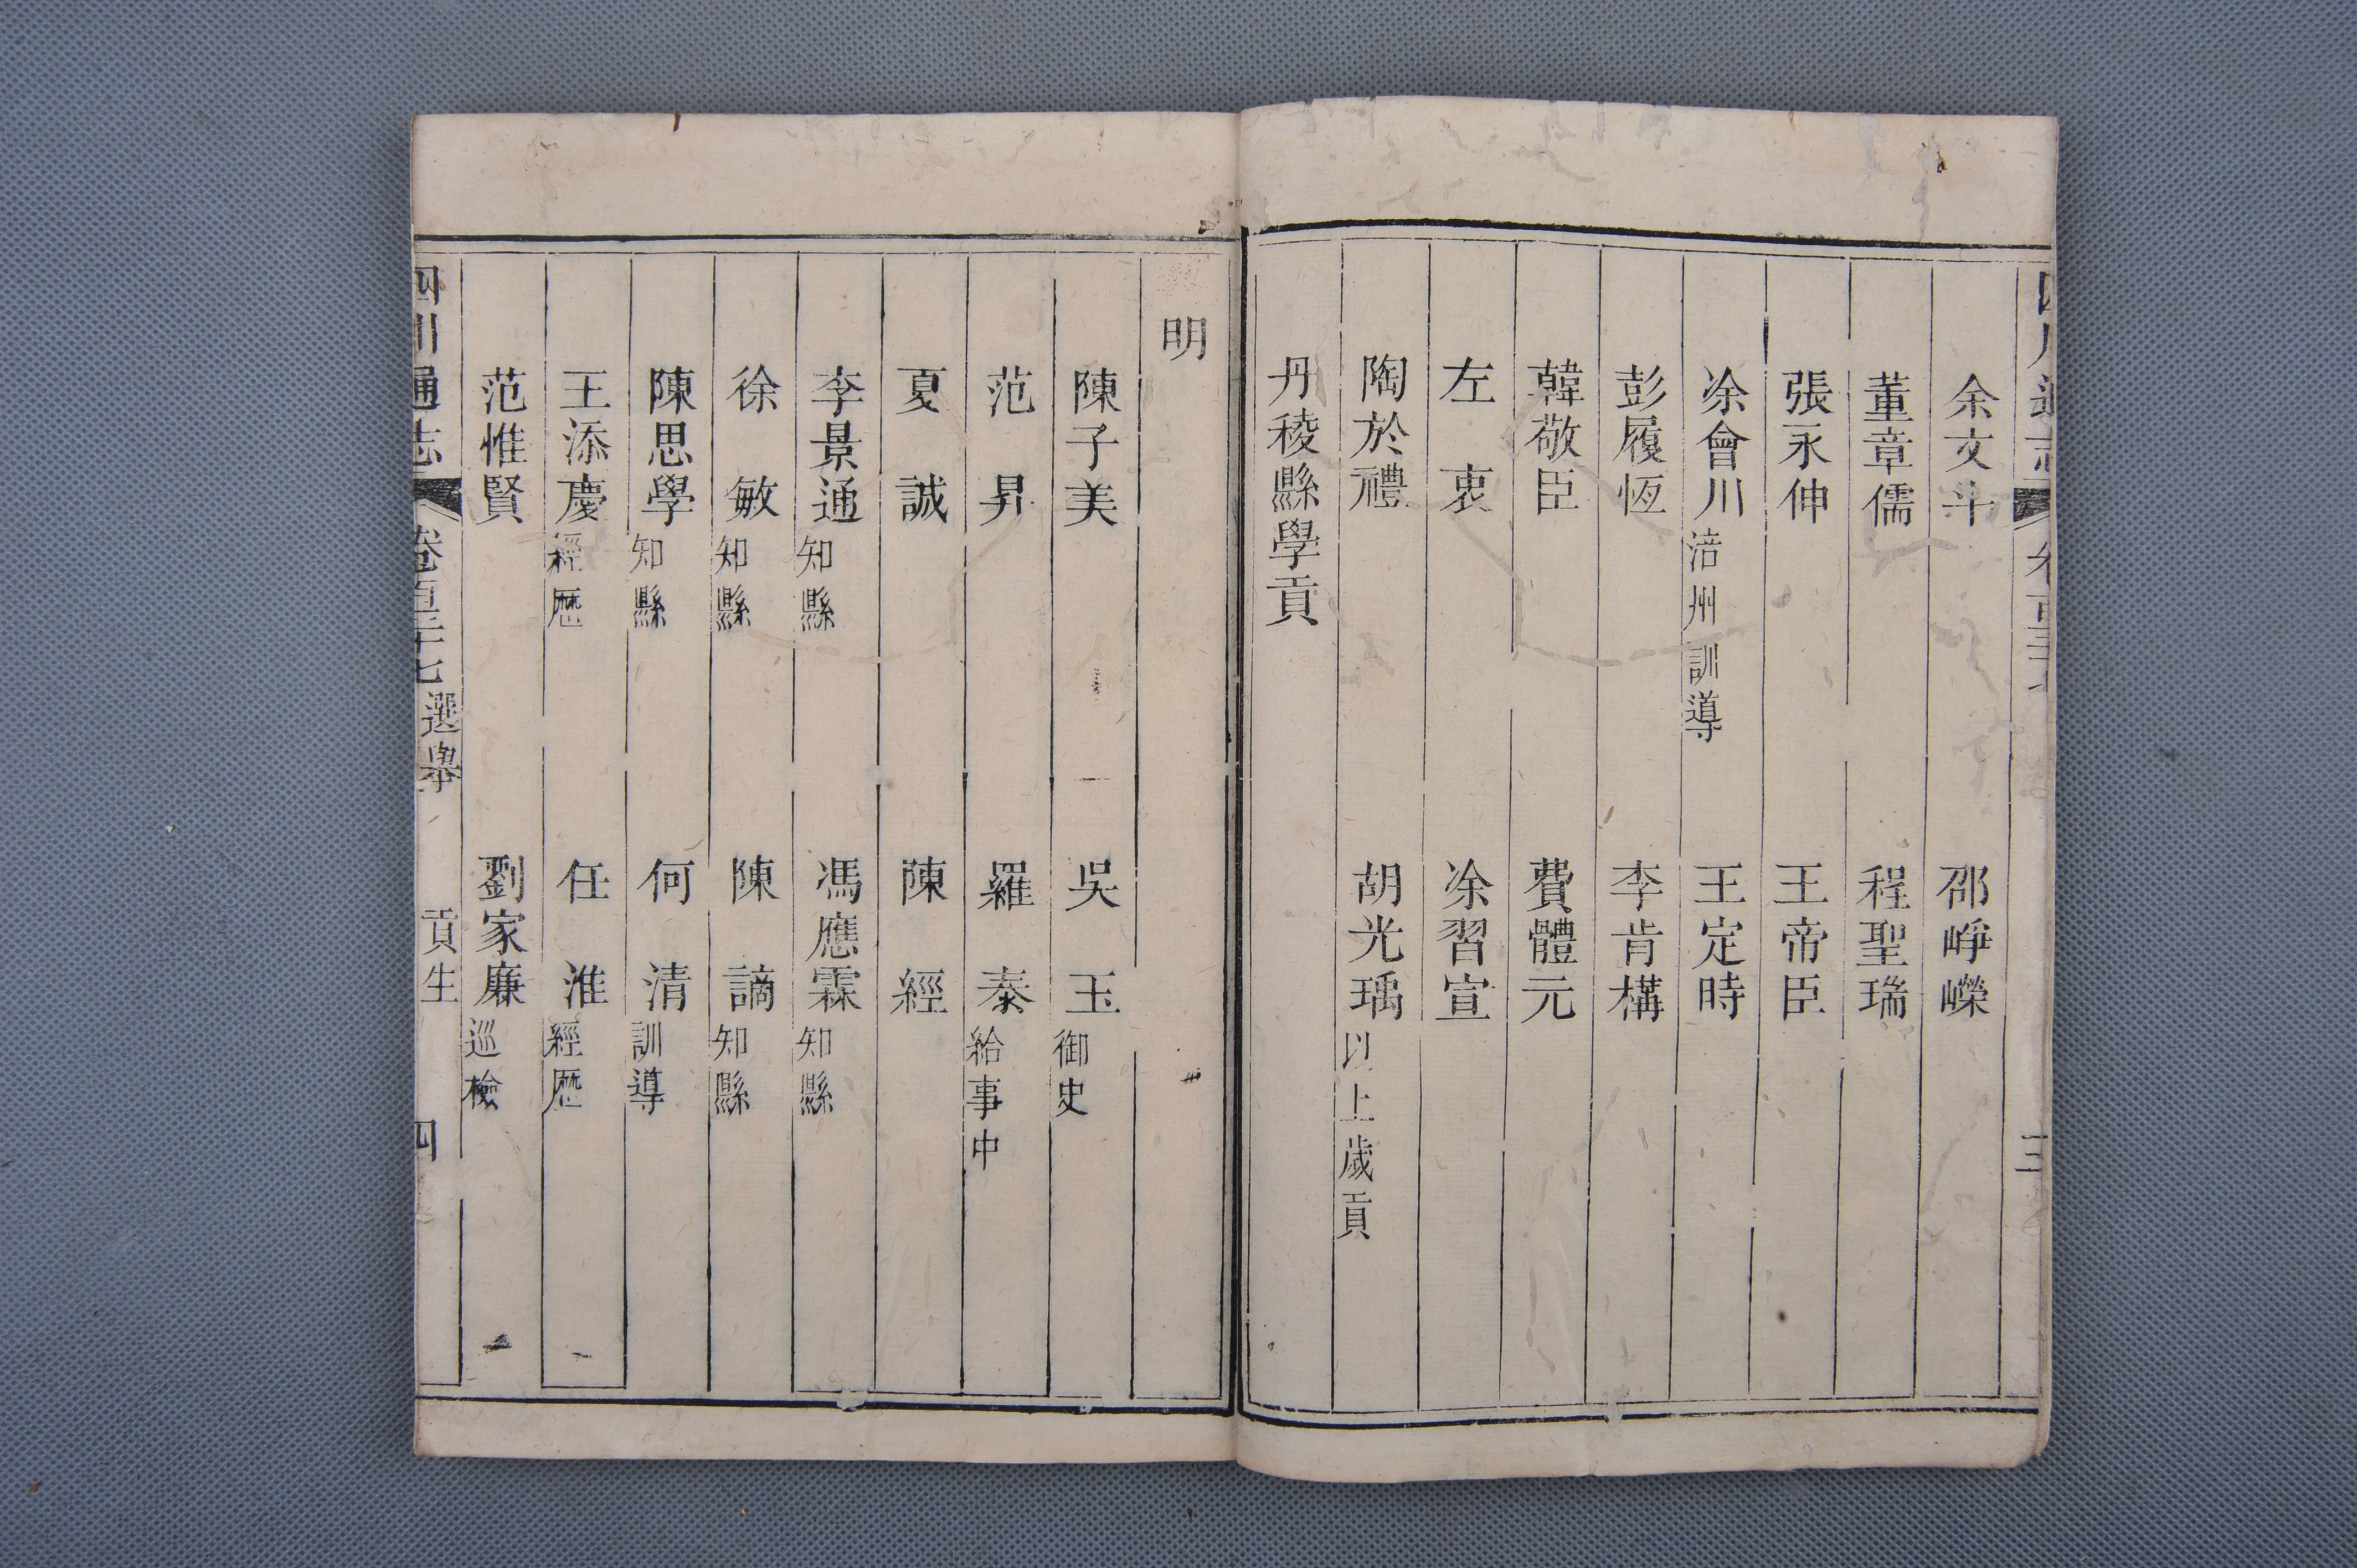 四川通志 卷百三十七 三
余文斗 邵崢嶸
董章儒 程聖瑞
張永伸 王帝臣
凃會川 涪州訓導 王定時
彭履恆 李肯構
韓敬臣 費體元
左衷 凃習宣
陶於禮 胡光瑀 以上歲貢
丹稜縣學貢
明
陳子美 吳玉 御史
范昇 羅泰 給事中
夏誠 陳經
李景通 知縣 馮應霖 知縣
徐敏 知縣 陳謫 知縣
陳思學 知縣 何清 訓導
王添慶 經歷 任淮 經歷
范惟賢 劉家廉 巡檢
四川通志 卷百三十七 選舉 貢生 四